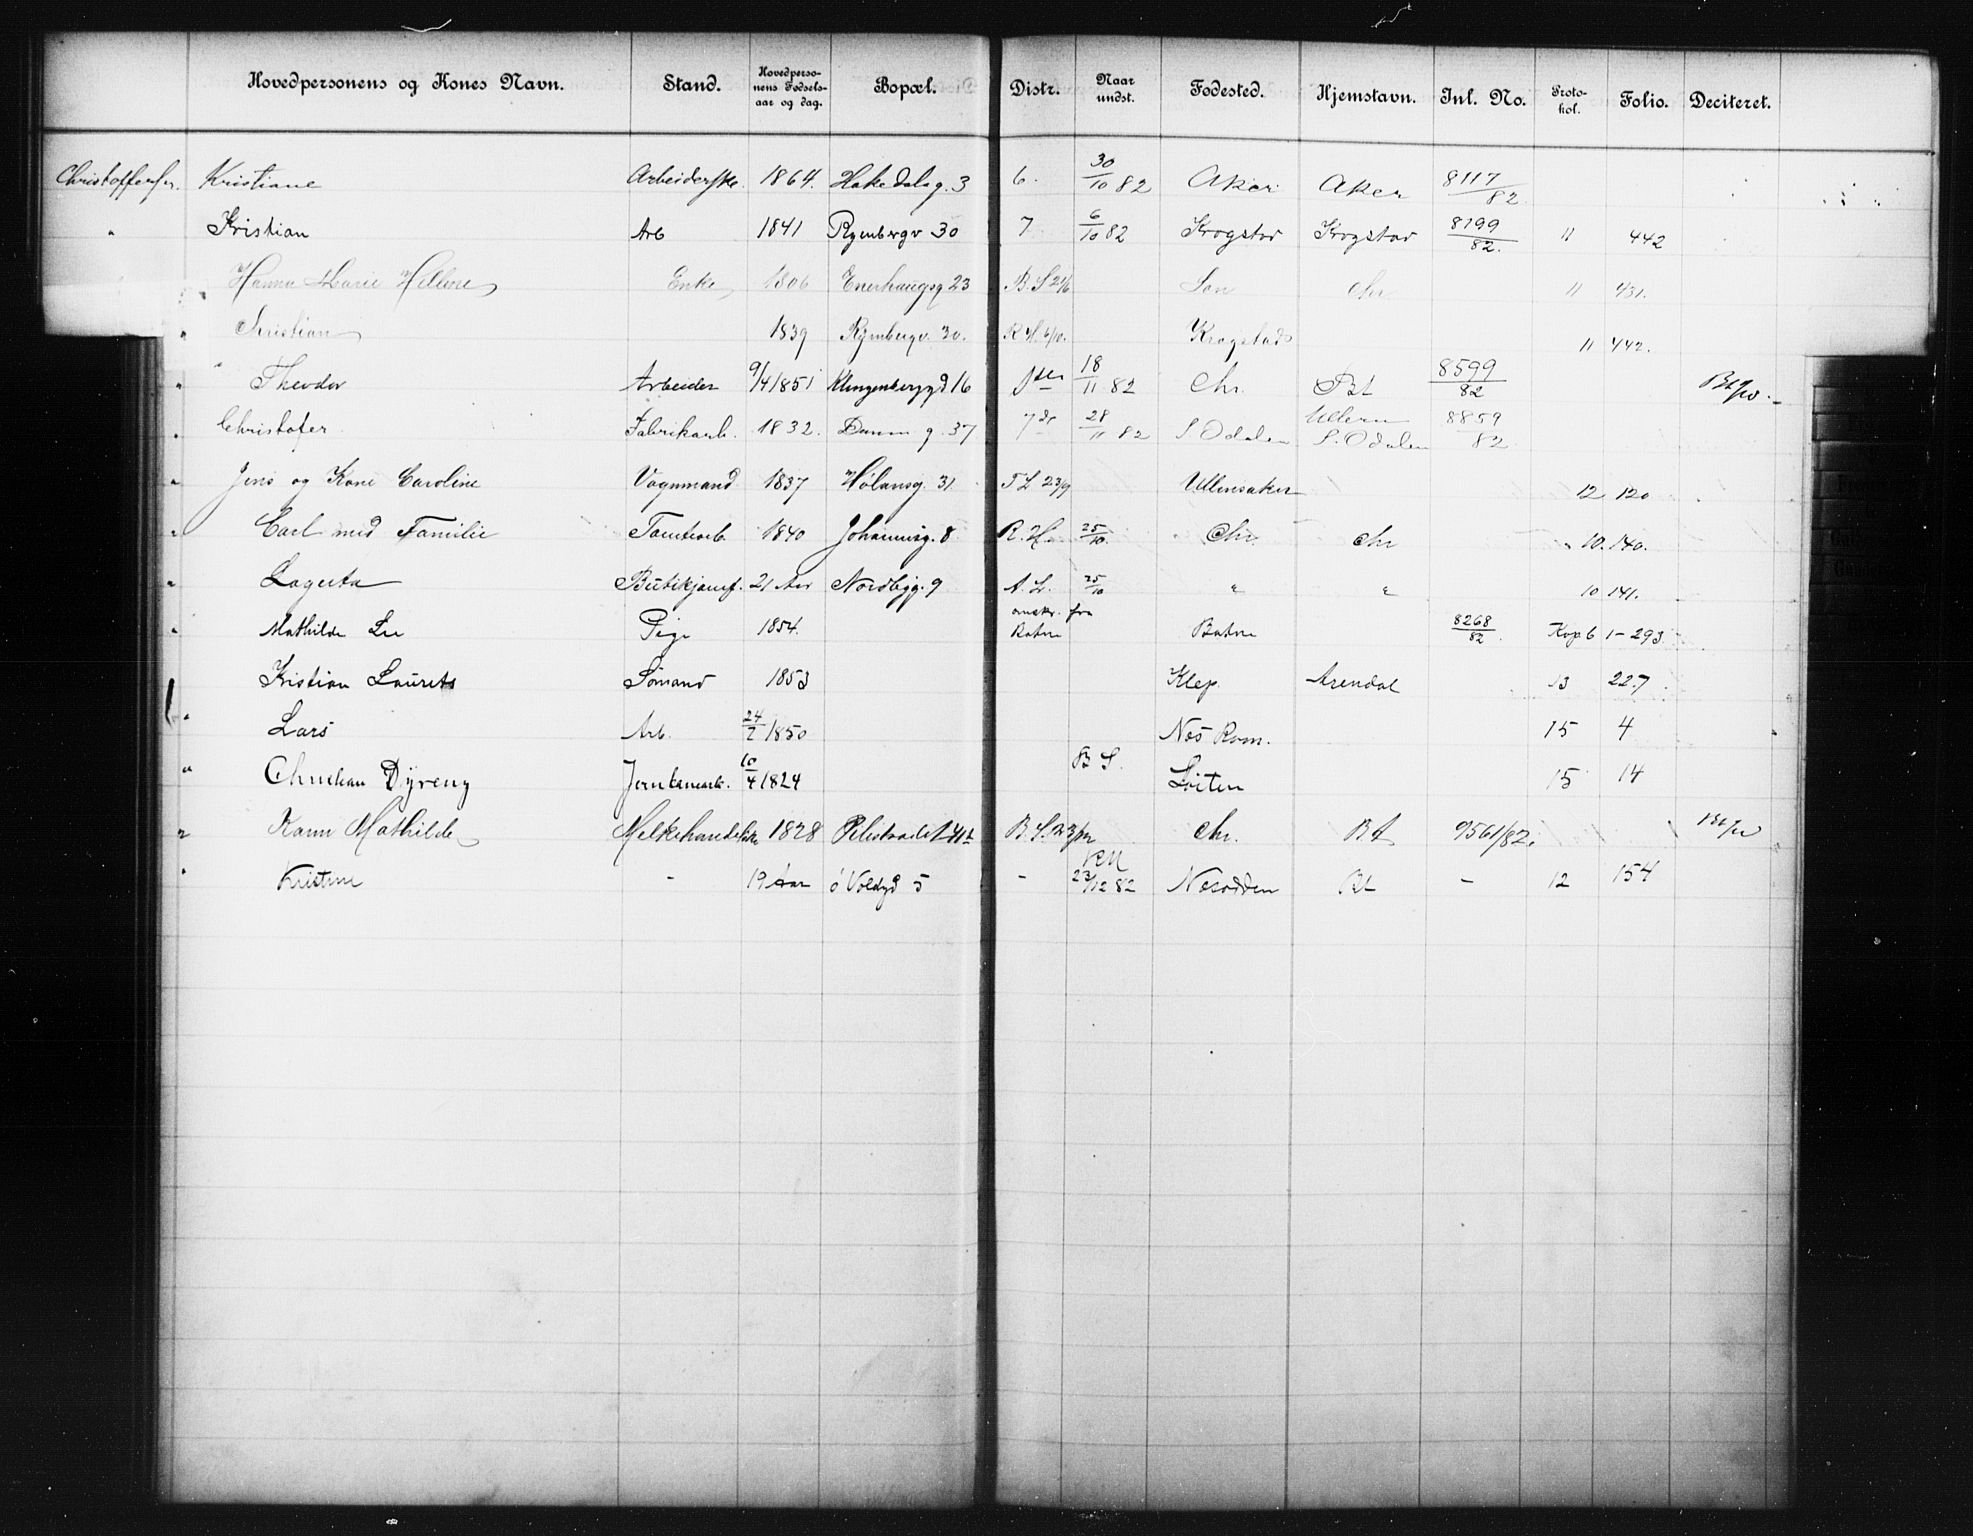 Hovedpersonens og Kones Navn. Stand. Hovedpersonens Fødselsaar og dag. Bopæl. Distr. Naar undst. Fødested. Hjemstavn. Inl. No. Protokol. Folio. Deciteret.
Christoffersen. Kristiane Arbeiderske. 1864. Hakedalsg. 3 6. 30/10 82 Aker Aker 8117/82
" Kristian Arb 1841 Ryenbergv 30 7 6/10 82 Krogstad Krogstad 8199/82. 11 442
Hanna Marie Helene Enke 1806 Enerhaugsg 23 B. S 21/6 Son Chr 11 431.
" Christian 1839 Ryenbergv. 30. R H. 6/10. Krogstads 11 442.
" Theodor Arbeider 9/4 1851 Klingenberggd 16 18/11 82 Chr. Bt 8599/82
" Christofer Fabrikarb. 1832. g. 37 7de 28/11 82 S Odalen Ullern S. Odalen 8859/82
" Jens og Kone Caroline Vognmand 1837 Hølansg. 31 T L 23/9 Ullensaker 12 120
" Carl med Familie Tomtearb. 1840 Johannesg. 8 R. H. 25/10. Chr. Chr 10. 140.
" Lagerta Butikjomf. 21 Aar Nordbyg. 9 A. L. 25/10 " " 10 141.
" Mathilde Lee Pige 1854. omskr. fra Batne Batne 8268/82. Kop 6 1-293
Kristian Laurets Sømand 1853 Klep Arendal 13 227
" Lars Arb. 24/2 1850 Nes Rom. 15 4
" Christian Dÿreng Jernbanearb. 10/4 1824 B S. Løiten 15 14
" Karen Mathilde Melkehandlerske 1828 Pilestrædet 41 B. S. 23/12 Chr. Bt 9561/82.
" Kristine - 19 Aar ø Voldgd 5 - 23/12 82 Nesodden Bt - 12 154